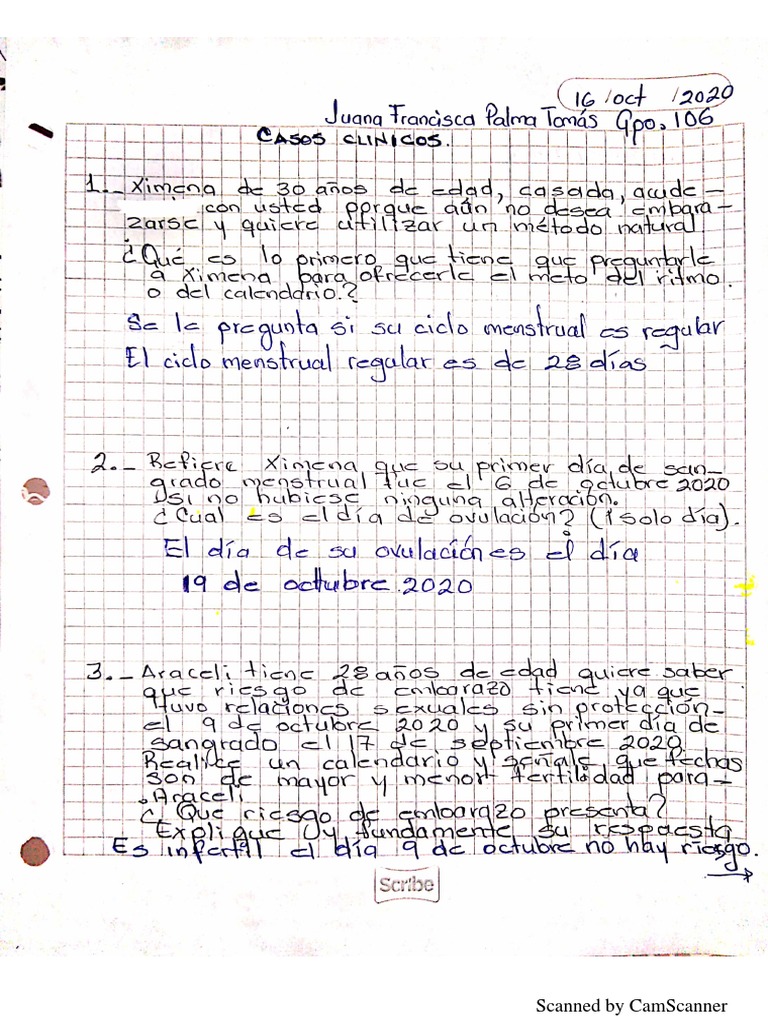 16/oct/2020
Juana Francisca Palma Tomás Gpo. 106
CASOS CLINICOS.
1._ Ximena de 30 años de edad, casada, acude –
con usted porque aún no desea embara –
zarse y quiere utilizar un método natural
¿Qué es lo primero que tiene que preguntarle
a Ximena para ofrecerle el meto del ritmo
o del calendario.?
Se le pregunta si su ciclo menstrual es regular
El ciclo menstrual regular es de 28 días
2._ Refiere Ximena que su primer día de san–
grado menstrual fue el 6 de octubre 2020
Dsi no hubiese ninguna alteración.
¿Cual es el día de ovulación? (1 solo día).
El día de su ovulación es el día
19 de octubre.2020
3._ Araceli tiene 28 años de edad quiere saber
que riesgo de embarazo tiene ya que
tuvo relaciones sexuales sin protección–
el 9 de octubre 2020 y su primer día de
sangrado el 17 de septiembre 2020.
Realice un calendario y señale que fechas
son de mayor y menor fertilidad para –
Araceli
¿ Que riesgo de embarazo presenta?
Explique y fundamente su respuesta
Es infertil el día 9 de octubre no hay riesgo.
Scribe
Scanned by CamScanner